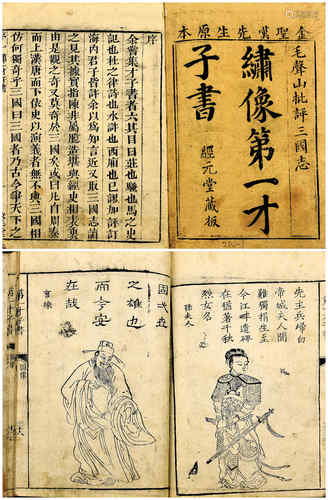 金聖歎先生原本
毛聲山批評三國志
繡像第一才
子書
經元堂藏板
序
余嘗集才子書者六其目曰莊也騷也馬之史
記也杜之律詩也水滸也西廂也已謬加評訂
海內君子皆許余以爲知言近又取三國志讀
之見其據實指陳非屬臆造堪與經史相表裏
由是觀之奇又莫奇於三國矣或曰凡自周秦
而上漢唐而下依史以演義者無不與三國相
仿何獨奇乎三國曰三國者乃古今爭天下之
先主兵歸白
帝城夫人聞
難獨捐生至
今江畔遺碑
在猶著千秋
烈女名
孫夫人
固一世
之雄也
而今安
在哉